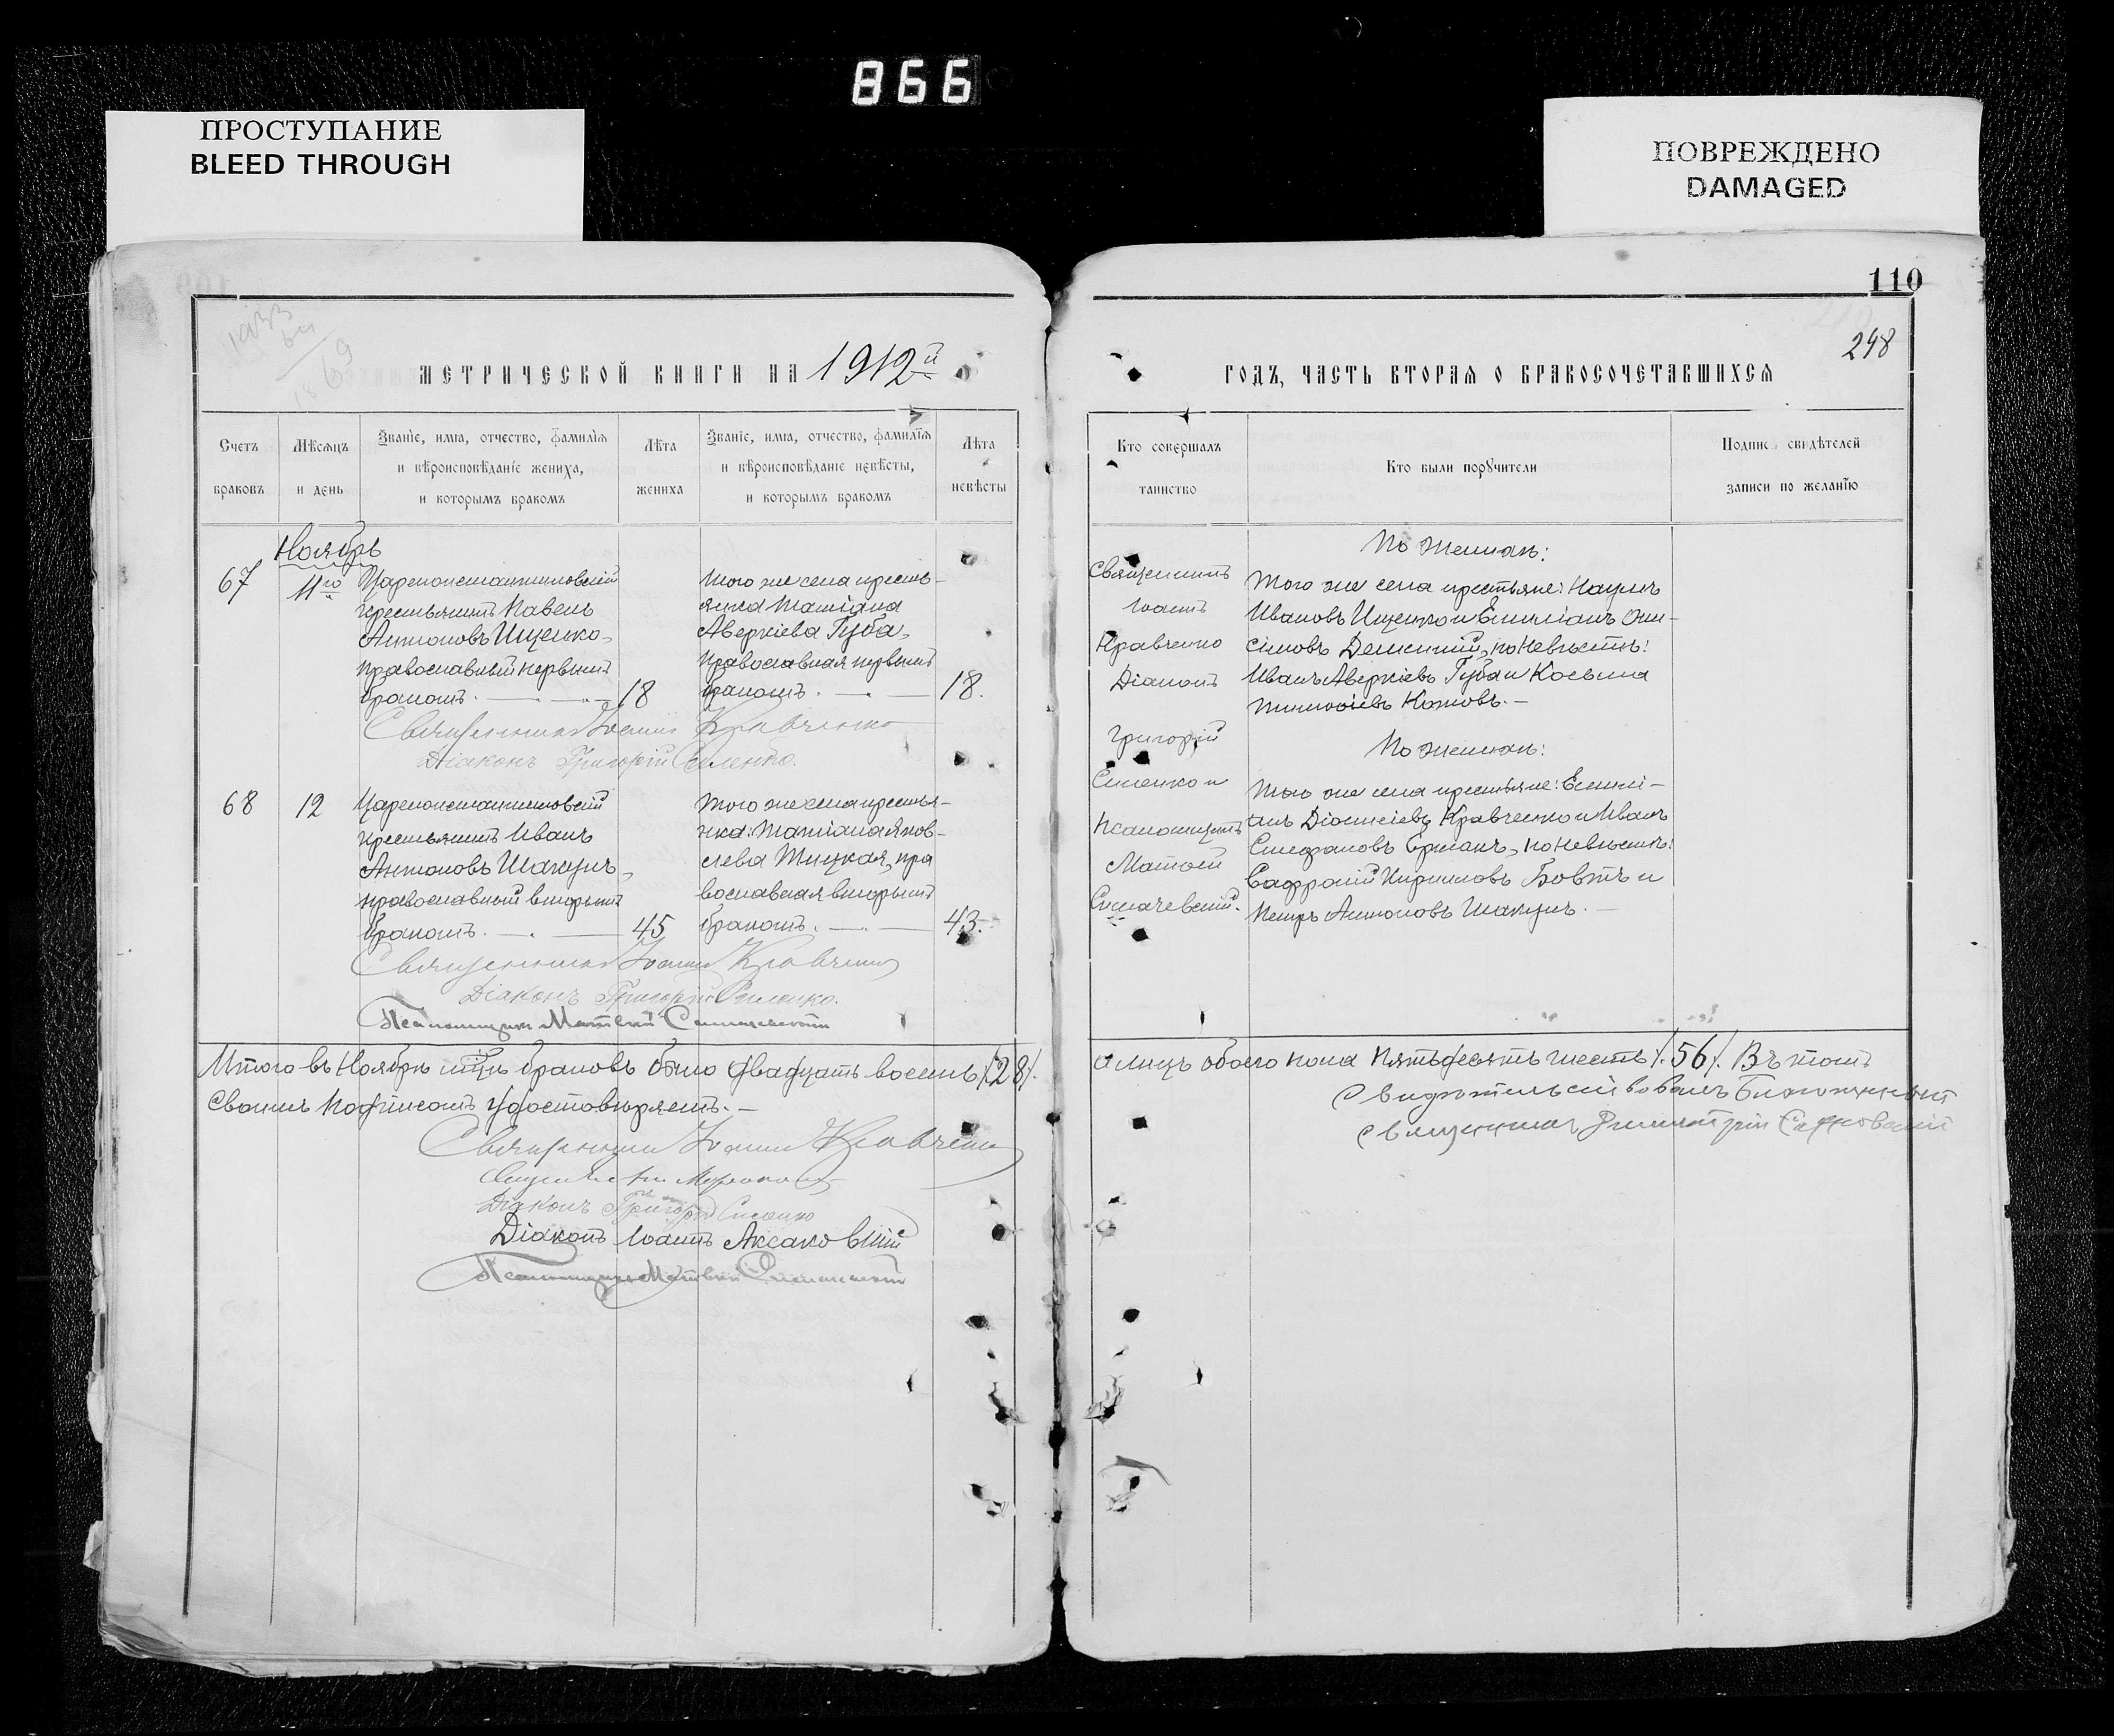 866
ПРОСТУПАНИЕ
BLEED THROUGH
ПОВРЕЖДЕНО
DAMAGED
110
298
МЕТРИЧЕСКОЙ КНИГИ НА 1912й
ГОДЪ, ЧАСТЬ ВТОРАЯ О БРАКОСОЧЕТАВШИХСЯ
Счетъ браковъ
Мѣсяцъ и день
Званіе, имя, отчество, фамилія
и вѣроисповѣданіе жениха,
и которымъ бракомъ
Лѣта жениха
Званіе, имя, отчество, фамилія
и вѣроисповѣданіе невѣсты,
и которымъ бракомъ
Лѣта невѣсты
Кто совершалъ таинство
Кто были поручители
Подпис свидѣтелей
записи по желанію
Ноябрь
67
11го
Цареконстантиновскій
крестьянинъ Павелъ
Антоновъ Ищенко,
православный первымъ
бракомъ. 18
того же села кресть-
янка Татіана
Аверкіева Губа,
православная первымъ
бракомъ. 18.
Священникъ Іоаннъ Кравченко
Діаконъ Григорій Силенко.
68
12
Цареконстантиновскій
крестьянинъ Иванъ
Антоновъ Шакунъ,
православный вторымъ
бракомъ. 45
того же села крестья-
нка: Татіана Яков-
лева Тицкая, пра
вославная вторымъ
бракомъ. 43.
Священникъ Іоаннъ Кравченко
Діаконъ Григорій Силенко.
Псаломщикъ Матвей
Священникъ
Іоаннъ
Кравченко
Діаконъ
Григорій
Силенко и
Псаломщикъ
Матвей
По женихѣ:
Того же села крестьяне: Наумъ
Ивановъ Ищенко и Емиліанъ Они-
сімовъ, по невѣстѣ:
Иванъ Аверкіевъ Губа и Косьма
Тимоѳіевъ Котовъ.
По женихѣ:
Того же села крестьяне: Емилі-
анъ Діонисіевъ Кравченко и Иванъ
Стефановъ Ермакъ, по невѣстѣ:
Сафроній Кириловъ Бовтъ и
Петръ Антоновъ Шакунъ.
Итого въ Ноябрѣ м-цѣ браковъ было двадцать восемь /28/.
а лицъ обоего пола пятьдесятъ шесть /56/. Въ томъ
своимъ подписомъ удостовѣряемъ.
Священникъ Іоаннъ Кравченко
Діаконъ Григорій Силенко
Діаконъ Іоаннъ Аксаковскій
Псаломщикъ Матвей
Свидѣтельствовалъ Благочинный
священникъ Димитрій